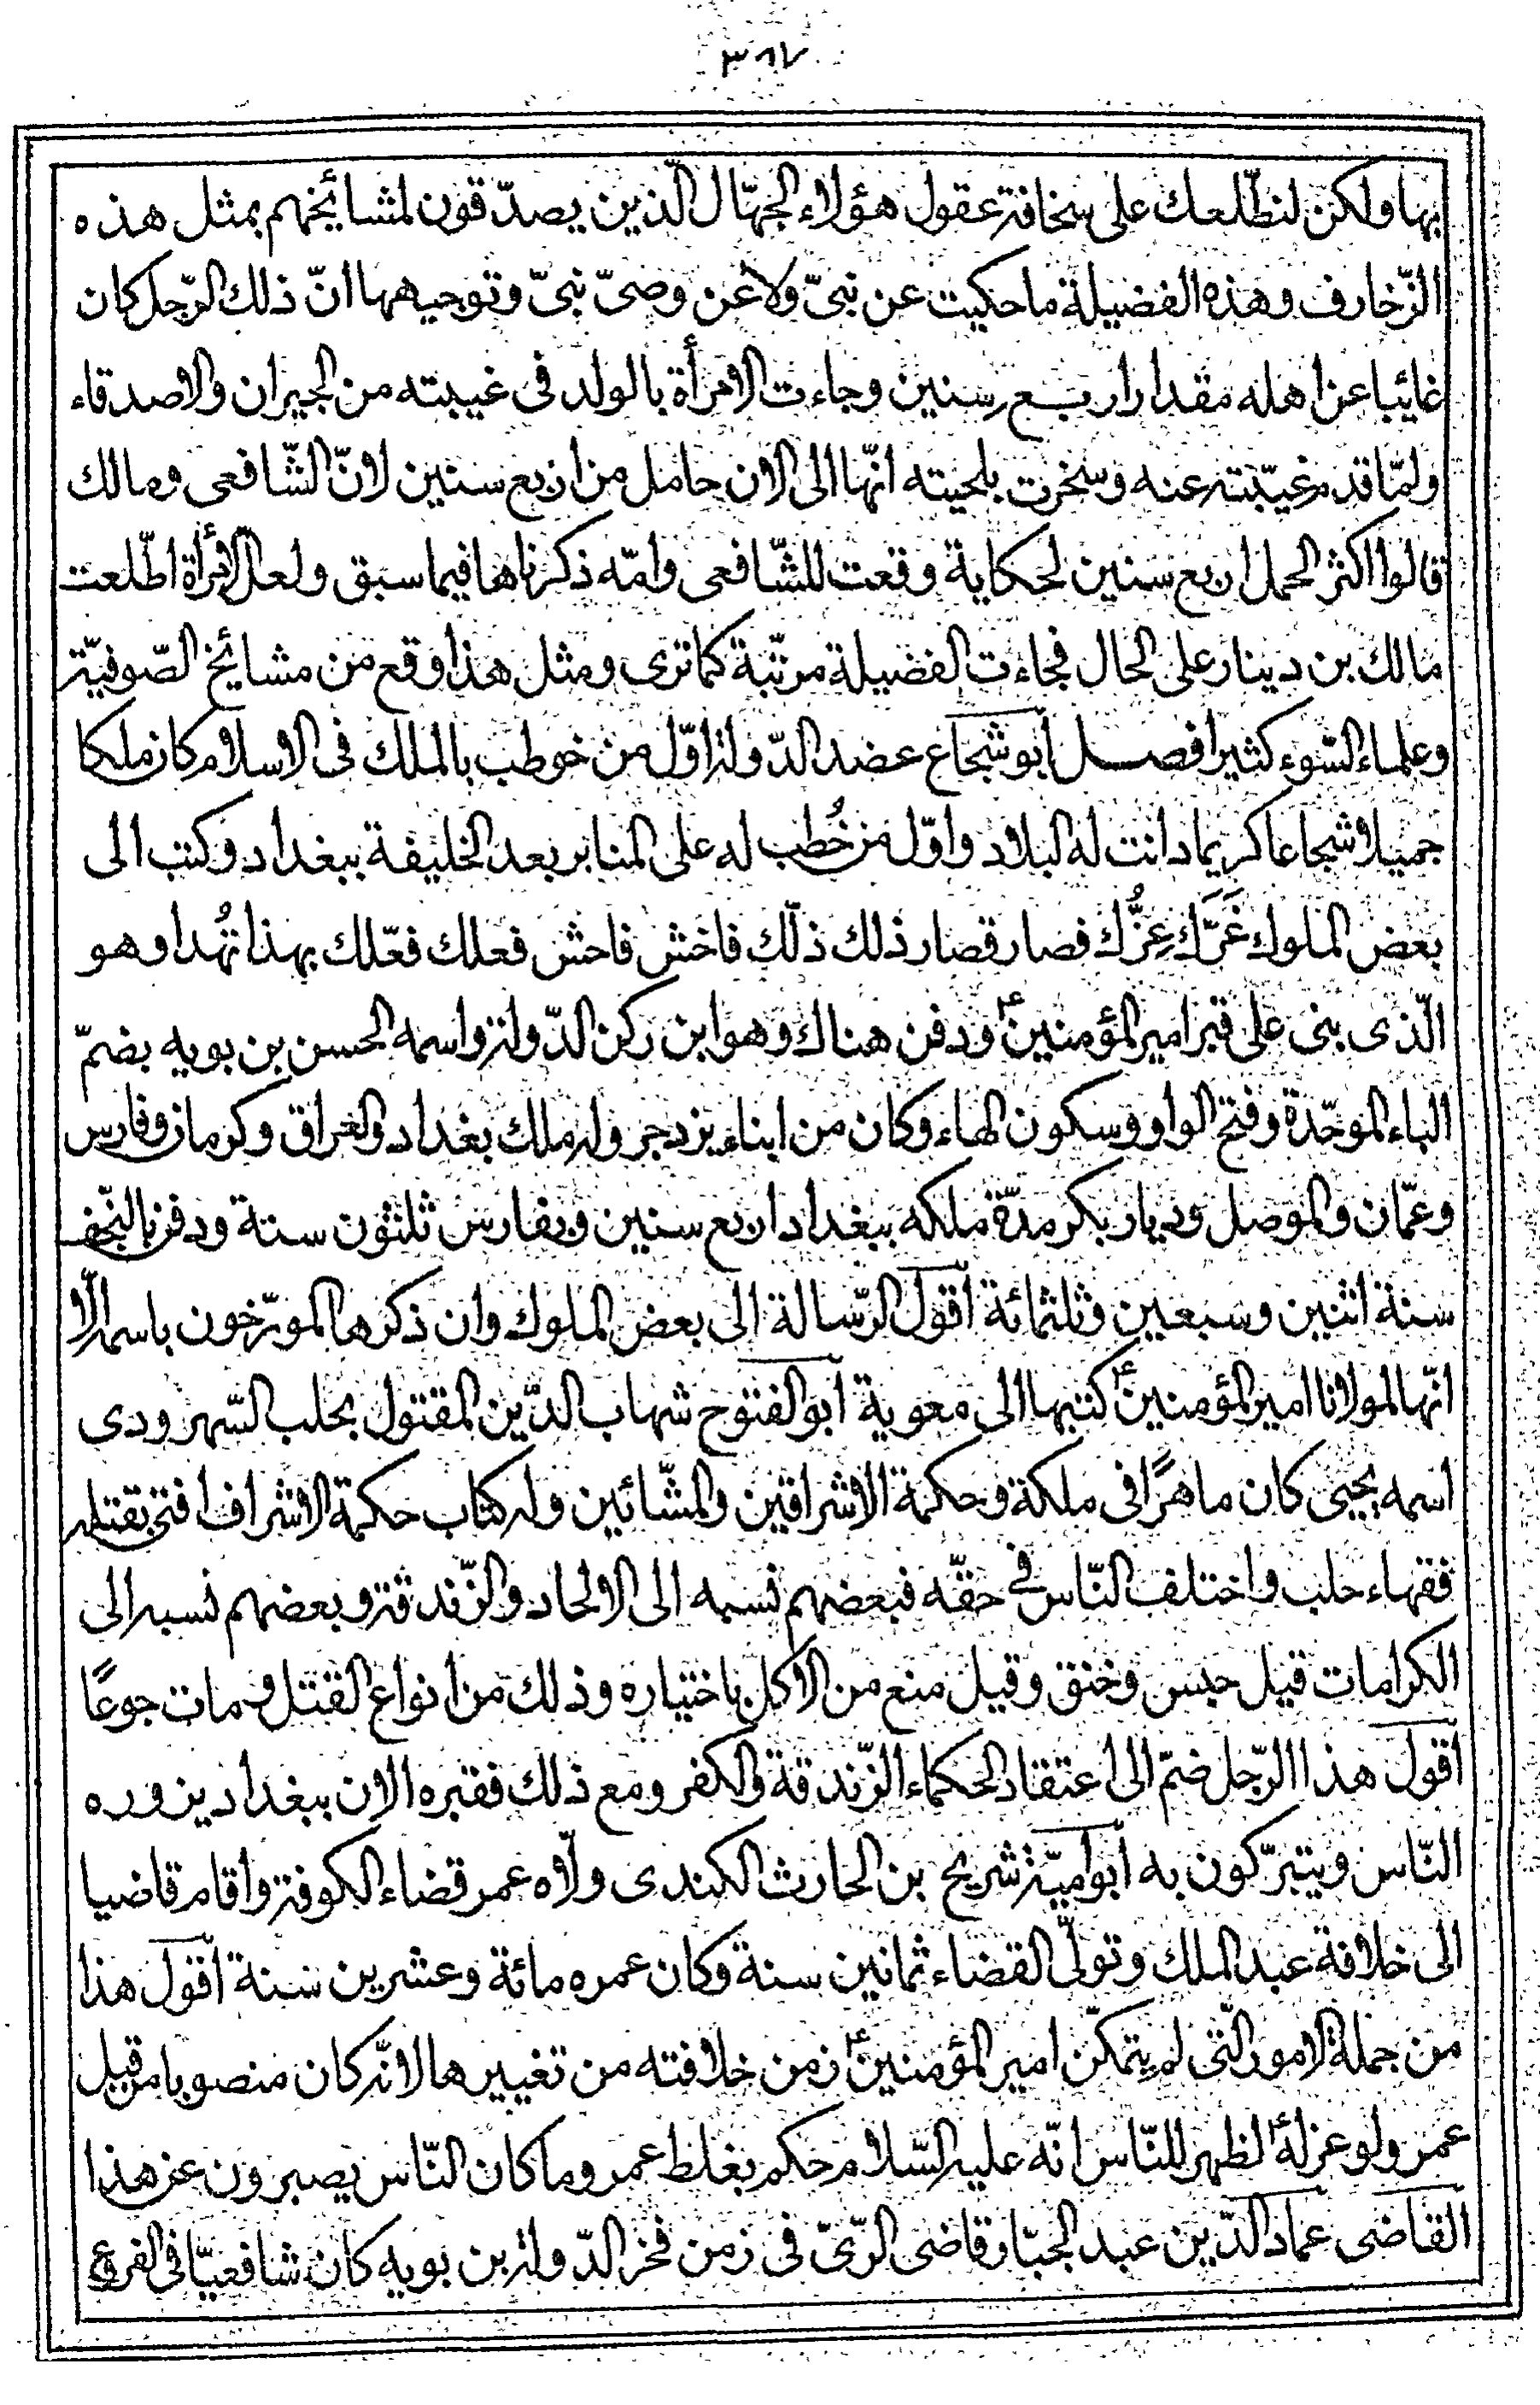 ٣٨٧
بها ولكن لنطّلعك على سخافة عقول هؤلاء الجهّال الّذين يصدّقون لمشائخهم بمثل هذه
الزّخارف وهذه الفضيلة ما حكيت عن نبىّ ولا عن وصىّ نبىّ وتوجيهها انّ ذلك الرّجل كان
غائبا عن اهله مقدار اربع سنين وجاءت الامرأة بالولد فى غيبته من الجيران والاصدقاء
ولمّا قدم غيّبته عنه وسخرت بلحيته انّها الى الان حامل من اربع سنين لانّ الشّافعى ومالك
قالوا اكثر الحمل اربع سنين لحكاية وقعت للشّافعى وامّه ذكرناها فيما سبق ولعلّ الامرأة اطّلعت
مالك بن دينار على الحال فجاءت الفضيلة مرتّبة كما ترى ومثل هذا وقع من مشائخ الصّوفيّة
وعلماء السّوء كثيرا فصل ابو شجاع عضد الدّولة اوّل من خوطب بالملك فى الاسلام كان ملكا
جميلا شجاعا كريما دانت له البلاد واوّل من خُطب له على المنابر بعد الخليفة ببغداد وكتب الى
بعض الملوك غَرَّك عِزُّك فصار قصار ذلك ذلّك فاخش فاحش فعلك فعّلك بهذا تُهدا وهو
الّذى بنى على قبر امير المؤمنين ع ودفن هناك وهو ابن ركن الدّولة واسمه الحسن بن بويه بضمّ
الباء الموحّدة وفتح الواو وسكون الهاء وكان من ابناء يزدجر وله ملك بغداد والعراق وكرمان وفارس
وعمّان والموصل وديار بكر مدّة ملكه ببغداد اربع سنين وبفارس ثلثون ستة ودفن بالنّجف
سنة اثنين وسبعين وثلثمائة اقول الرّسالة الى بعض الملوك وان ذكرها المورّخون باسمه الّا
انّها لمولانا امير المؤمنين ع كتبها الى معوية ابو الفتوح شهاب الدّين المقتول بحلب السّهرودى
اسمه يحيى كان ماهرًا فى ملكة وحكمة الاشراقين والمشّائين وله كتاب حكمة الاشراف افتى بقتله
فقهاء حلب واختلف النّاس فى حقّه فبعضهم نسبه الى الالحاد والزّندقة وبعضهم نسبه الى
الكرامات قيل حبس وخنق وقيل منع من الاكل باختياره وذلك من انواع القتل ومات جوعًا
اقول هذا الرّجل ضمّ الى اعتقاد الحكماء الزّندقة والكفر ومع ذلك فقبره الان ببغداد يزوره
النّاس ويتبرّكون به ابو اميّة شريح بن الحارث الكندى ولّاه عمر قضاء الكوفة واقام قاضيا
الى خلافة عبد الملك وتولّى القضاء ثمانين سنة وكان عمره مائة وعشرين سنة اقول هذا
من جملة الامور الّتى لم يتمكّن امير المؤمنين ع زمن خلافته من تغييرها لانّه كان منصوبا من قبل
عمر ولو عزله لظهر للنّاس انّه عليه السّلام حكم بغلط عمر وما كان النّاس يصبرون عن هذا
القاضى عماد الدّين عبد الجبّار قاضى الرّىّ فى زمن فخر الدّولة بن بويه كان شافعيّا فى الفروع